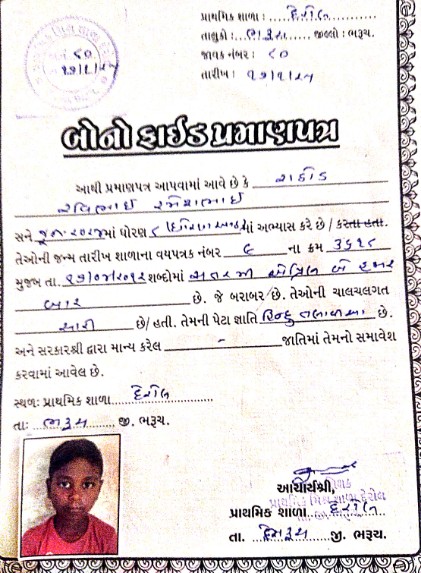 પ્રાથમિક શાળા : દેરોલ
તાલુકો : ભરૂચ જીલ્લો : ભરૂચ.
જાવક નંબર : ૮૦
તારીખ :
બોનોફાઈડ પ્રમાણપત્ર
આથી પ્રમાણપત્ર આપવામાં આવે છે કે રાઠોડ
રવિભાઈ રમેશભાઈ
સને જૂન-૨૦૨૪માં ધોરણ ૮ માં અભ્યાસ કરે છે / કરતા હતા.
તેઓની જન્મ તારીખ શાળાના વયપત્રક નંબર ૯ ના ક્રમ ૩૬૧૮
મુજબ તા. ૧૭/૦૪/૨૦૧૨ શબ્દોમાં સત્તરમી એપ્રિલ બે હજાર
બાર છે. જે બરાબર છે. તેઓની ચાલચલગત
સારી છે/ હતી. તેમની પેટા જ્ઞાતિ હિન્દુ તલાવીઆ છે.
અને સરકારશ્રી દ્વારા માન્ય કરેલ - જાતિમાં તેમનો સમાવેશ
કરવામાં આવેલ છે.
સ્થળ: પ્રાથમિક શાળા દેરોલ
તા: ભરૂચ જી. ભરૂચ.
આચાર્યશ્રી,
પ્રાથમિક શાળા દેરોલ
તા. ભરૂચ જી. ભરૂચ.